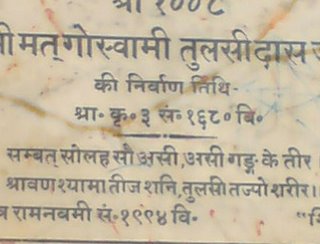 श्री १००८
मत् गोस्वामी तुलसीदास
की निर्वाण तिथि-
श्रा॰ कृ॰ ३ स॰ १६८० वि॰
सम्बत् सोलह सौ असी, असी गङ्ग के तीर।
श्रावण श्यामा तीज शनि, तुलसी तज्यो शरीर।
रामनवमी सं॰ १९९४ वि॰